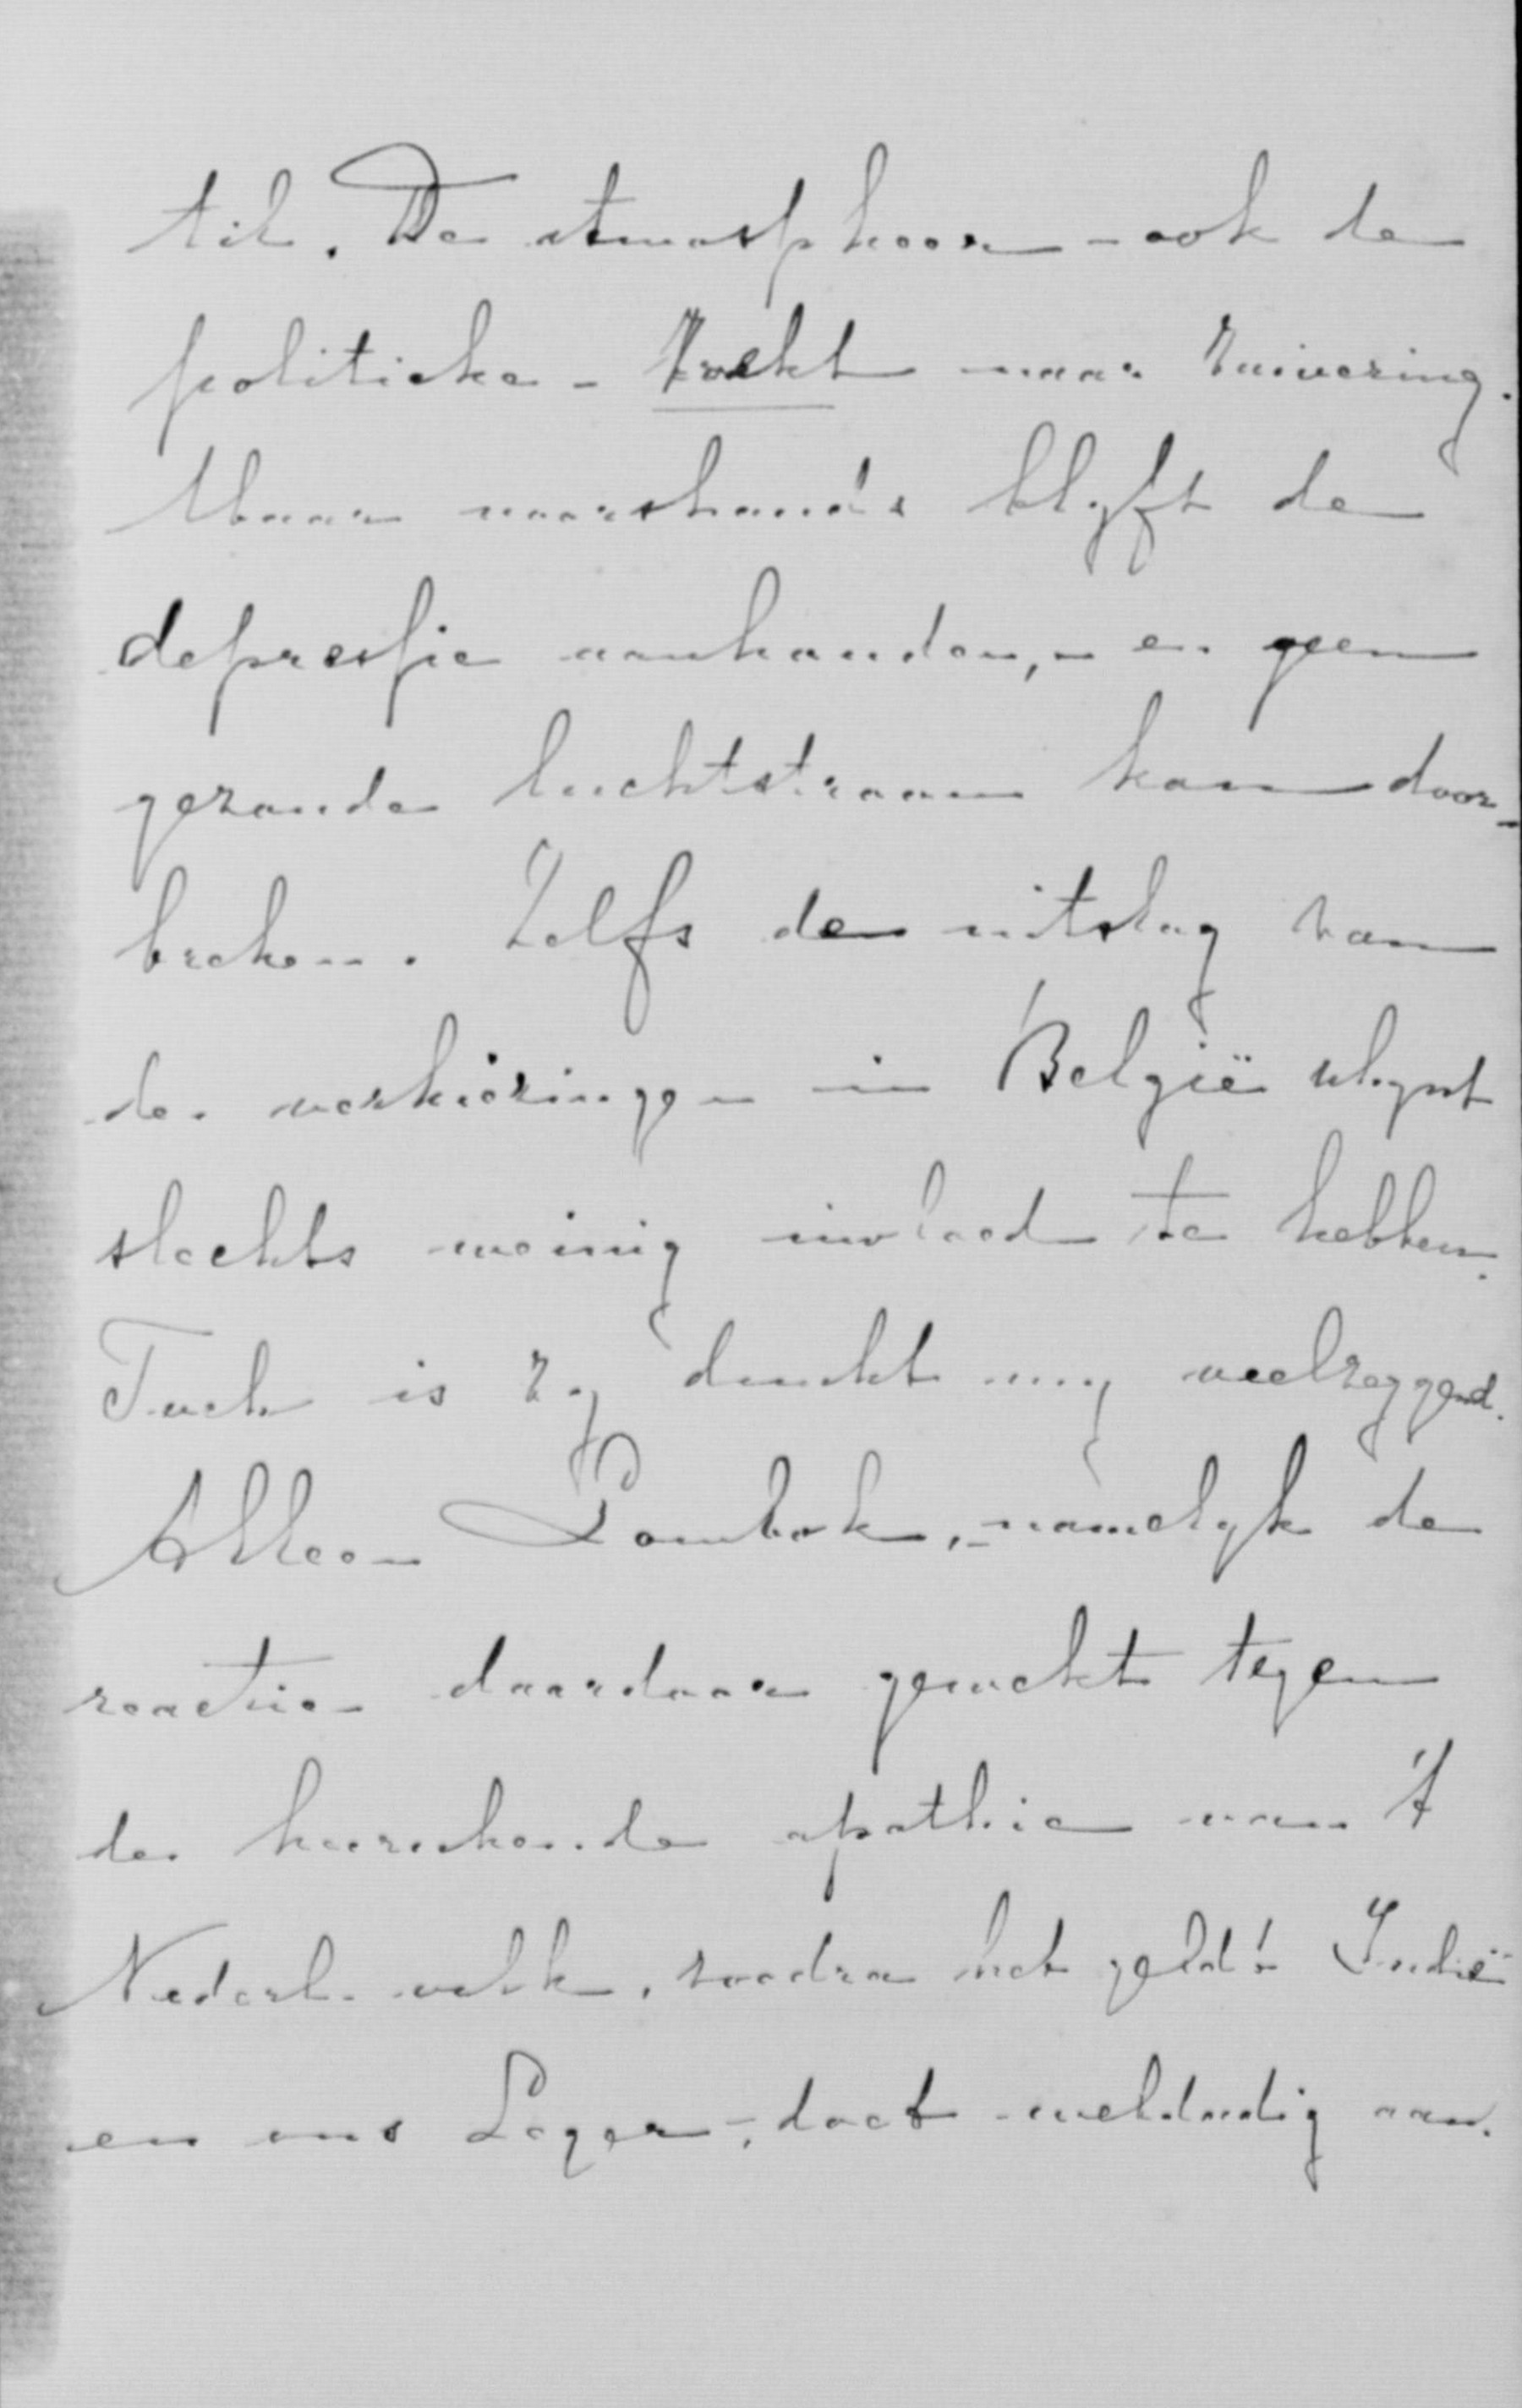 til. De atmospheer - ook de
politieke - trekt naar zuivering.
Maar voorshands blyft de
depressie aanhouden, - en geen
gezonde luchtstroom kan door-
breken. Zelfs de uitslag van
de verkiezingen in België schynt
slechts weinig invloed te hebben.
Toch is zy dunkt my veelzeggend.
Alleen Lombok, - namelyk de
reactie daardoor gewekt tegen
de heerschende apathie van 't
Nederl. volk, zoodra het geldt Indië
en ons Leger -, doet weldadig aan.